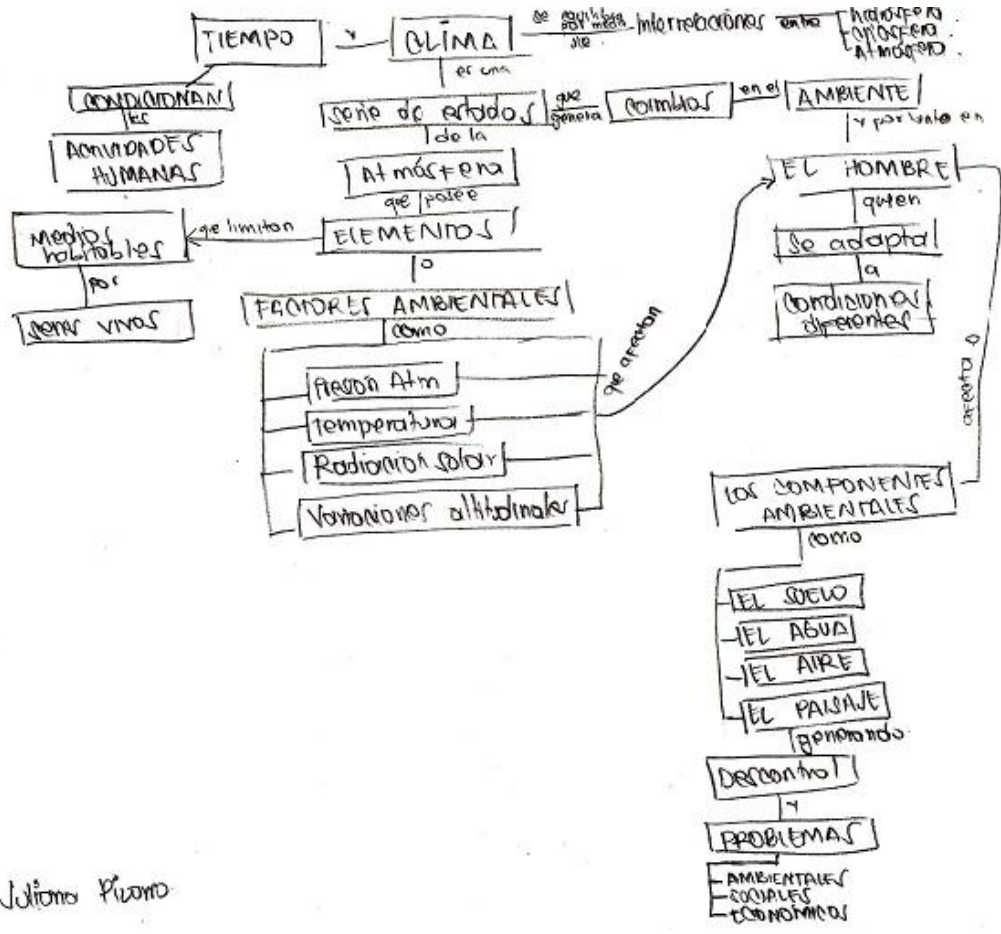 TIEMPO
y
CLIMA
se equilibra
por medio
de
Interrelaciones entre
hidrosfera
criosfera
Atmósfera
CONDICIONAN
las
ACTIVIDADES
HUMANAS
es una
serie de estados
que
genera
cambios
en el
AMBIENTE
y por ende en
de la
Atmósfera
que posee
ELEMENTOS
que limitan
medios
habitables
por
seres vivos
o
FACTORES AMBIENTALES
como
Presión Atm
temperatura
Radiacion solar
Variaciones altitudinales
que afectan
EL HOMBRE
quien
se adapta
a
condiciones
diferentes
afecta a
LOS COMPONENTES
AMBIENTALES
como
EL SUELO
EL AGUA
EL AIRE
EL PAISAJE
generando
Descontrol
y
PROBLEMAS
AMBIENTALES
SOCIALES
ECONÓMICOS
Juliana